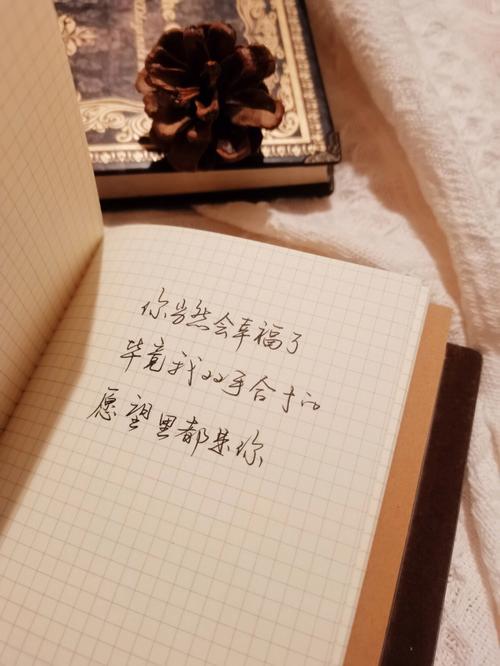 你当然会幸福了
毕竟我双手合十的
愿望里都是你